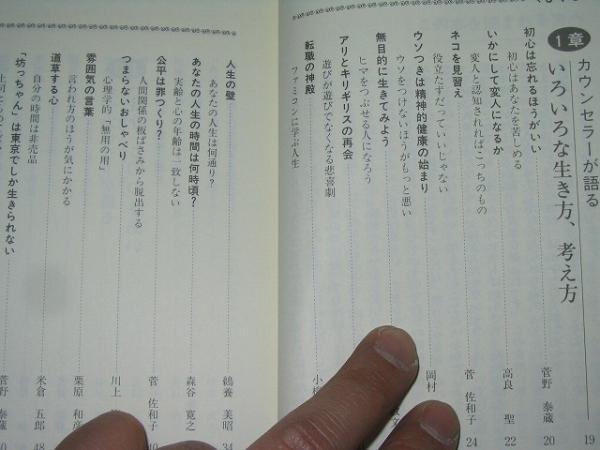 1章
カウンセラーが語る
いろいろな生き方、考え方 19
初心は忘れるほうがいい
初心はあなたを苦しめる 菅野 泰蔵 20
いかにして変人になるか
変人と認知されればこっちのもの 高良 聖 22
ネコを見習え
役立たずだっていいじゃない 菅 佐和子 24
ウソつきは精神的健康の始まり
ウソをつけないほうがもっと悪い 岡村
無目的に生きてみよう
ヒマをつぶせる人になろう
アリとキリギリスの再会
遊びが遊びでなくなる悲喜劇
転職の神殿
ファミコンに学ぶ人生 小
人生の壁
あなたの人生は何通り? 鵜養 美昭 34
あなたの人生の時間は何時頃?
実齢と心の年齢は一致しない 森谷 寛之
公平は罪つくり?
人間関係の板ばさみから脱出する 菅 佐和子
つまらないおしゃべり
心理学的「無用の用」 川上
雰囲気の言葉
言われ方のほうが気にかかる 栗原 和彦
道草する心
自分の時間は非売品 米倉 五郎 48
「坊っちゃん」は東京でしか生きられない
菅野 泰蔵